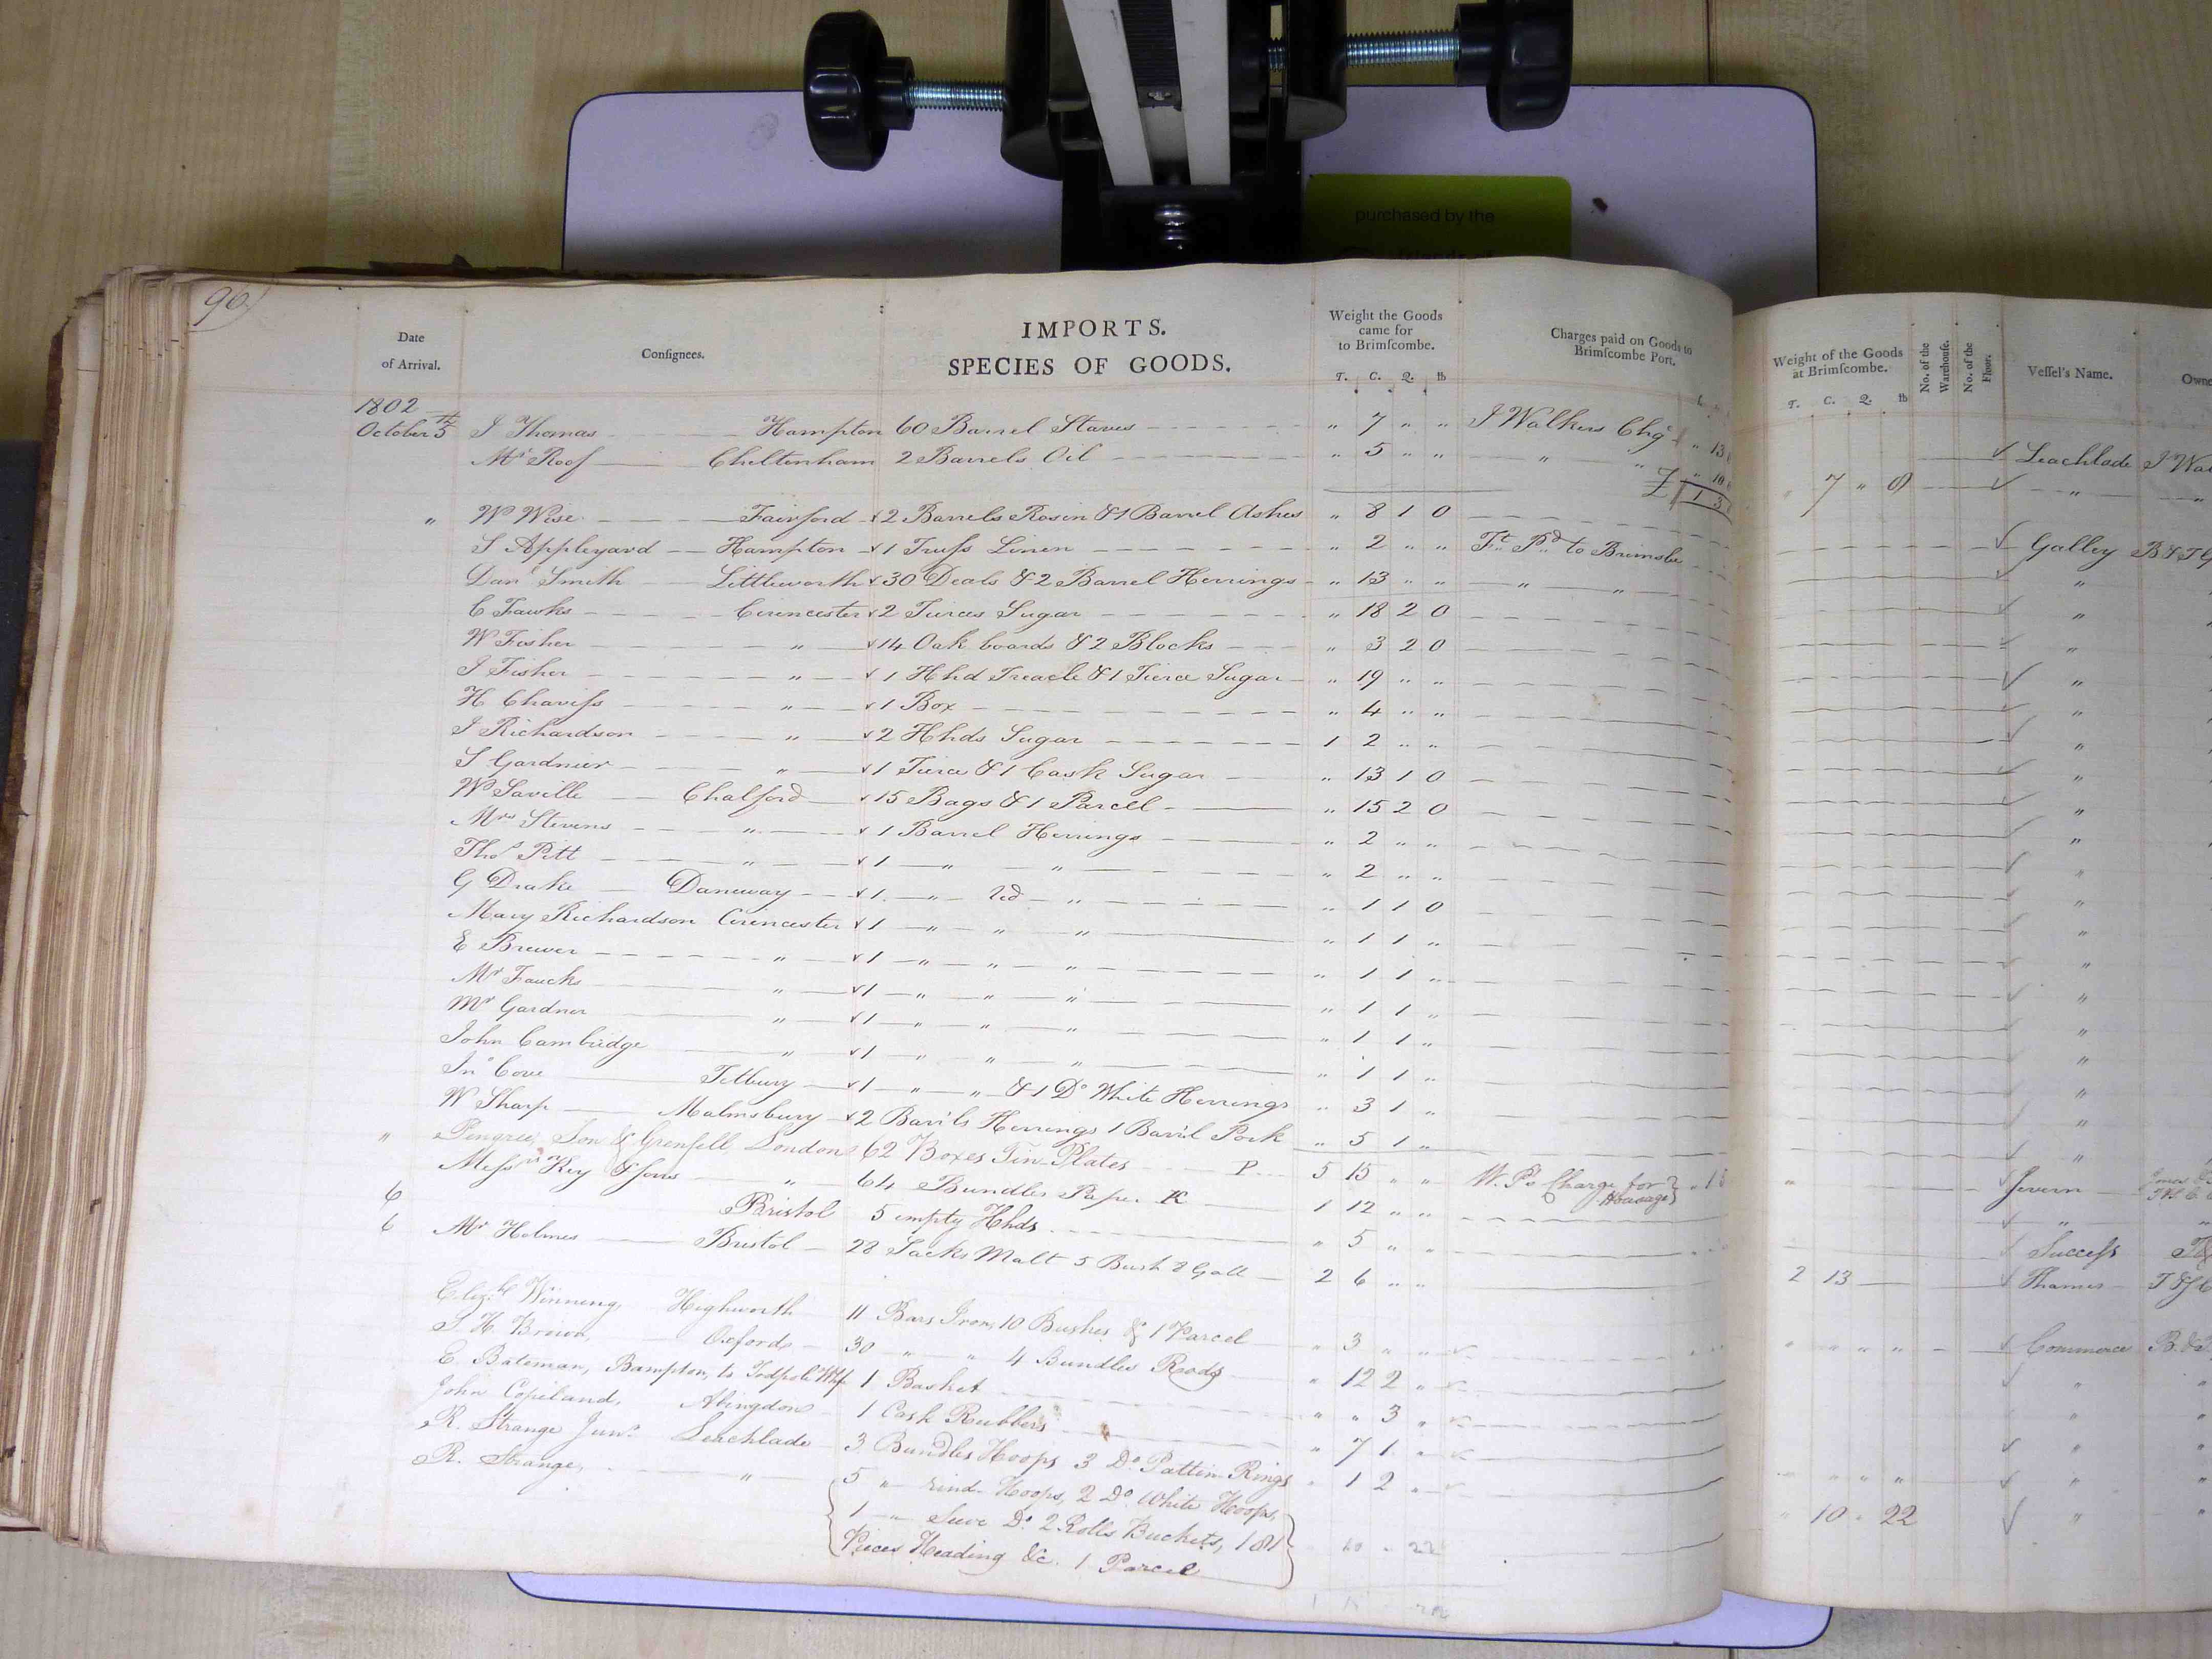 purchased by the
90
Date of Arrival. Consignees. IMPORTS. SPECIES OF GOODS. Weight the Goods came for to Brimſcombe. T. C. Q. lb Charges paid on Goods to Brimſcombe Port. Weight of the Goods at Brimſcombe. T. C. Q. lb No. of the Warehouſe. No. of the Floor. Veſſel's Name. Owne
1802
October 5th J Thomas Hampton 60 Barrel Staves " 7 " " J Walkers Chge " 13 Leachlade J Wal
Mr Roof Cheltenham 2 Barrels Oil " 5 " " " " " 10 " 7 " 0 " "
£ 1 3
" W Wise Fairford 2 Barrels Rosin & 1 Barrel Ashes " 8 1 0 Galley B & T G
S Appleyard Hampton 1 Truſs Linen " 2 " " Ft Pd to Brimsbe "
Danl Smith Littleworth 30 Deals & 2 Barrel Herrings " 13 " " " " "
C Fawks Cirencester 2 Tierces Sugar " 18 2 0 "
W Fisher " 14 Oak boards & 2 Blocks " 3 2 0 "
J Fisher " 1 Hhd Treacle & 1 Tierce Sugar " 19 " " "
H Chaviſs " 1 Box " 4 " " "
J Richardson " 2 Hhds Sugar 1 2 " " "
S Gardner " 1 Tierce & 1 Cask Sugar " 13 1 0 "
W Saville Chalford 15 Bags & 1 Parcel " 15 2 0 "
Mrs Stevens " 1 Barrel Herrings " 2 " " "
Thos Pitt " 1 " " " 2 " " "
G Drake Daneway 1 " red " " 1 1 0 "
Mary Richardson Cirencester 1 " " " " 1 1 " "
E Brewer " 1 " " " " 1 1 " "
Mr Fauck " 1 " " " " 1 1 " "
Mr Gardner " 1 " " " " 1 1 " "
John Cambridge " 1 " " " " 1 1 " "
Jno Cove Tetbury 1 " " & 1 Do White Herrings " 3 1 " "
W Sharp Malmsbury 2 Barrls Herrings 1 Barrl Pork " 5 1 " "
" Pengree, Son & Grenfell, London 62 Boxes Tin Plates P. 5 15 " " W. Ps Charge for Houseage " 15 Severn
Meſsrs Key & Sons " 64 Bundles Paper K 1 12 " " "
6 Bristol 5 empty Hhds " 5 " " Succeſs
6 Mr Holmes Bristol 28 Sacks Malt 5 Bush 8 Gall 2 6 " " 2 13 Thames T & J C
Elizth Winning, Highworth 11 Bars Iron, 10 Bushes & 1 Parcel " 3 " " Commerce B. &
T. H. Brown, Oxford 30 " " 4 Bundles Rods " 12 2 " "
E. Bateman, Bampton, to Whf 1 Basket " " 3 " "
John Copeland, Abingdon 1 Cask Rubbers " 7 1 " "
R. Strange Junr Leachlade 3 Bundles Hoops 3 Do Pattin Rings " 1 2 " "
R. Strange, " 5 " rind Hoops, 2 Do White Hoops,
1 " Sieve Do 2 Rolls Buckets, 181 10 " 22 " 10 " 22 "
Pieces Heading &c. 1 Parcel